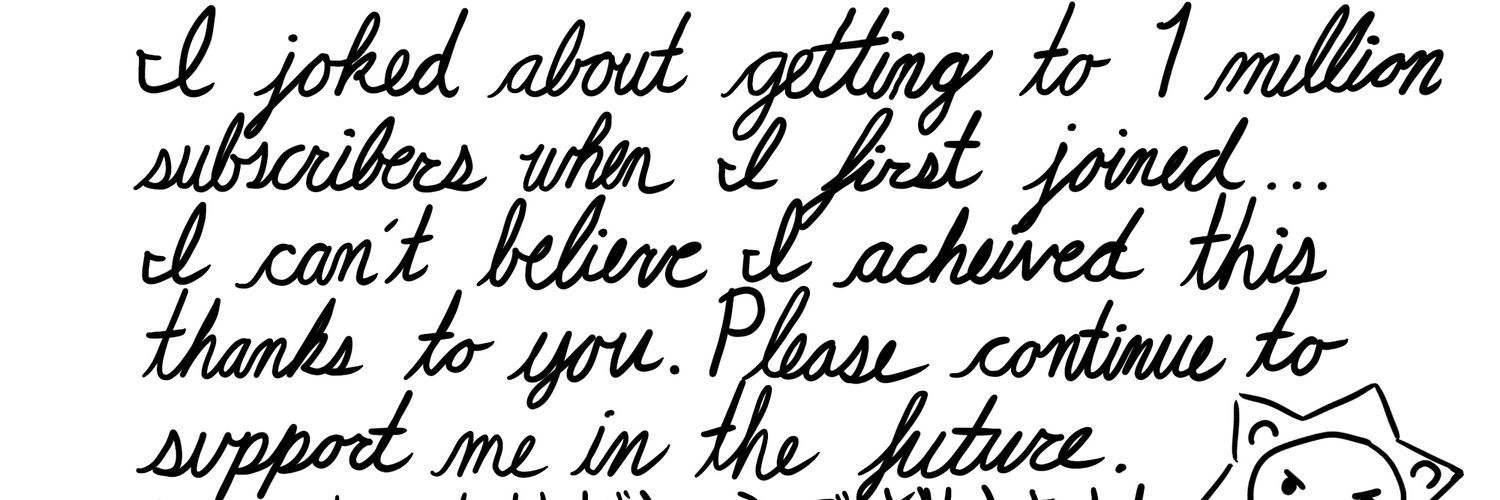 I joked about getting to 1 million
subscribers when I first joined...
I can't believe I acheived this
thanks to you. Please continue to
support me in the future.